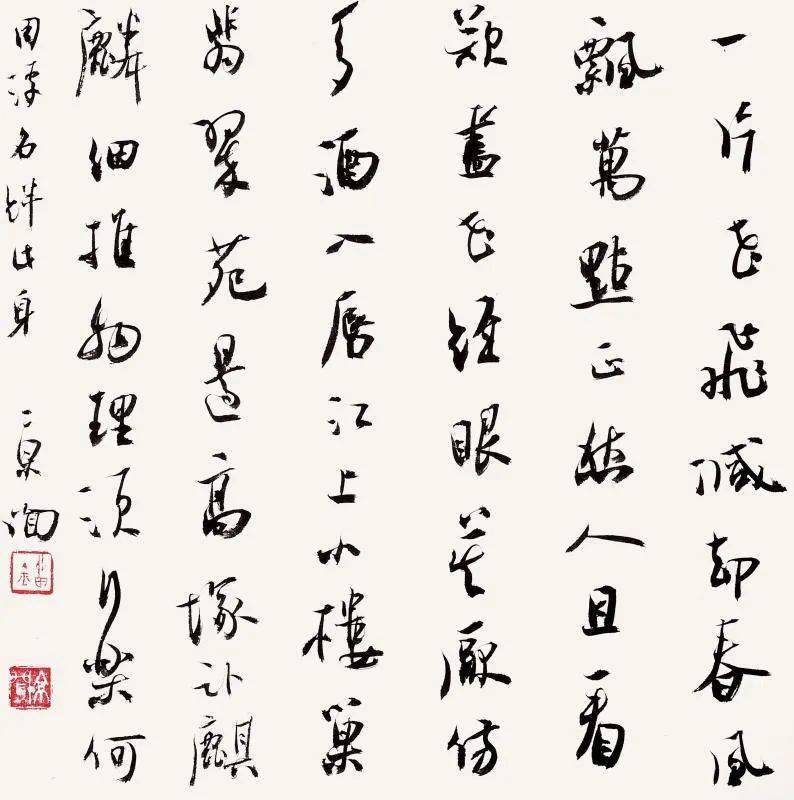 一片花飛減却春風
飄萬點正愁人且看
欲盡花經眼莫厭傷
多酒入唇江上小樓巢
翡翠苑邊高塚卧麒
麟細推物理須行樂何
用浮名絆此身